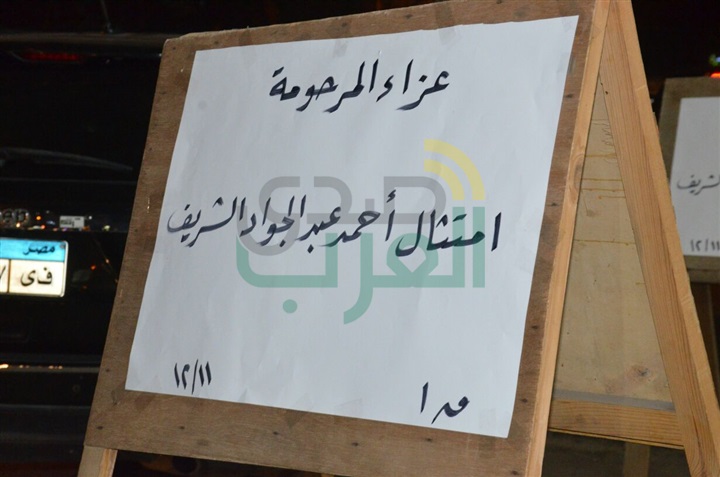 عزاء المرحومة
امتثال أحمد عبد الجواد الشريف
١٢/١١
صدى العرب
مصر
الشريف
١٢/١١